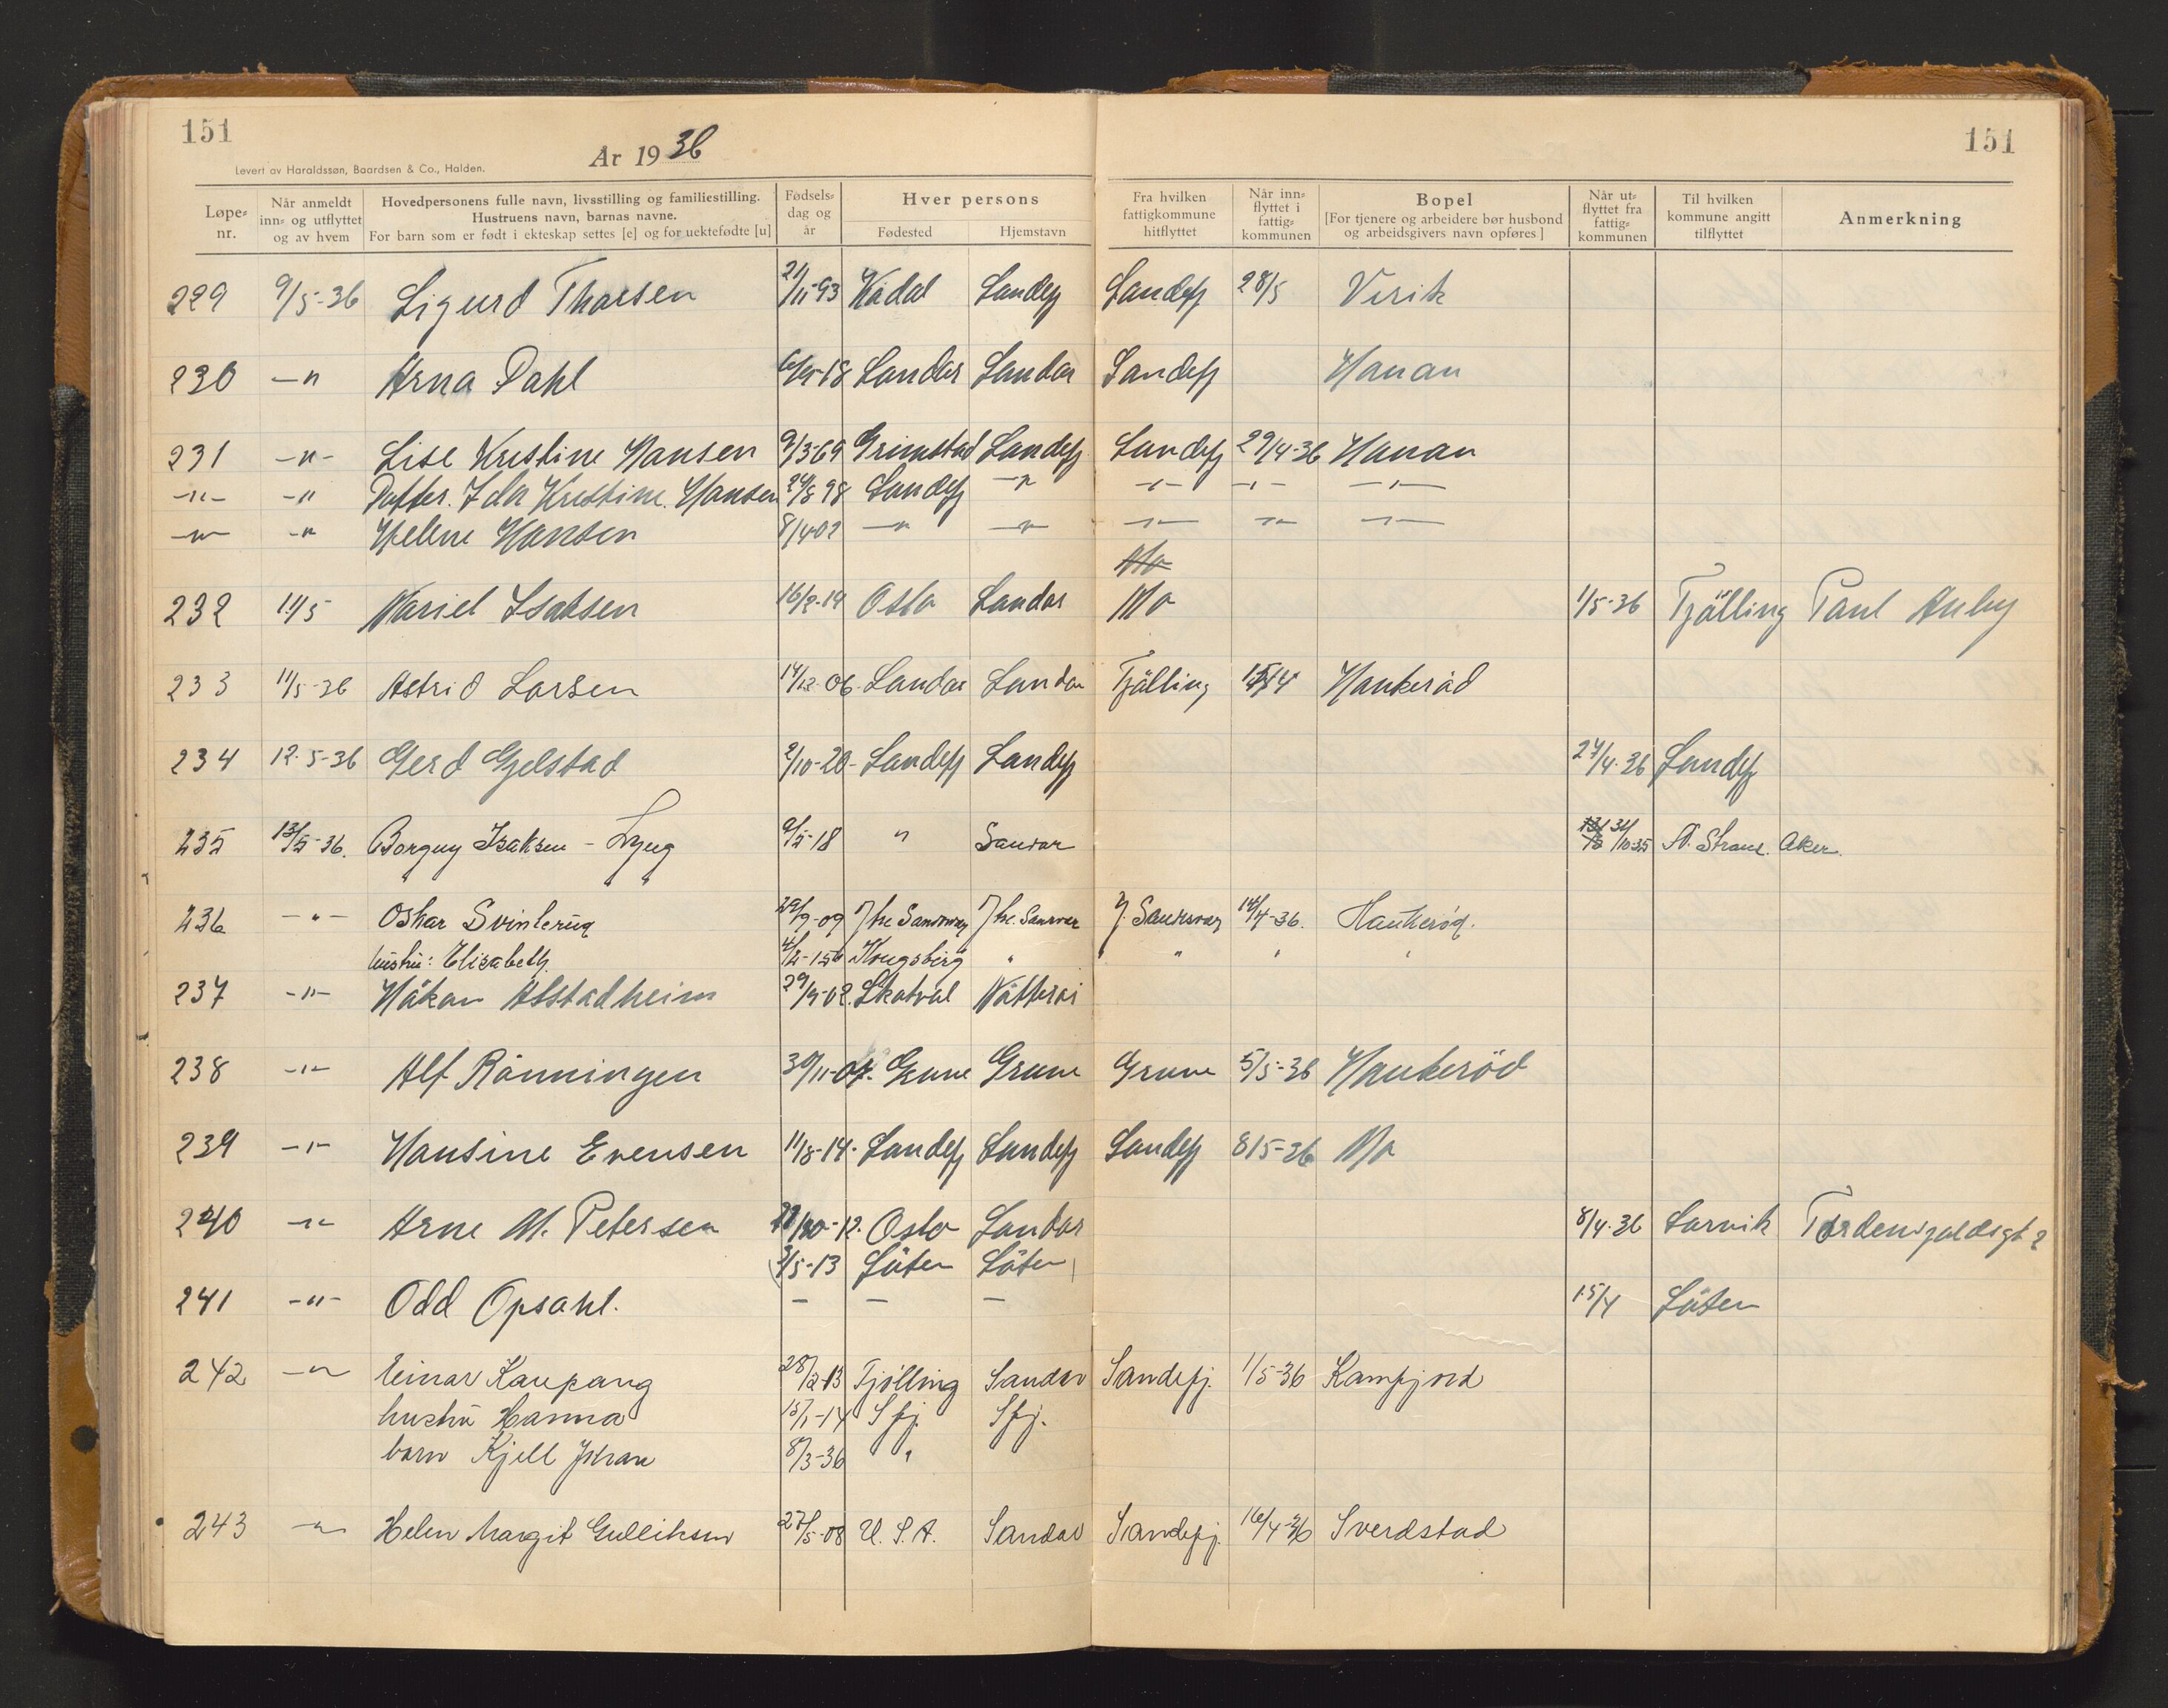 151
151
År 1936
Levert av Haraldssøn, Baardsen & Co., Halden.
Løpenr. Når anmeldt inn- og utflyttet og av hvem Hovedpersonens fulle navn, livsstilling og familiestilling. Hustruens navn, barnas navne. For barn som er født i ekteskap settes [e] og for uektefødte [u] Fødselsdag og år Hver persons Fødested Hjemstavn Fra hvilken fattigkommune hitflyttet Når innflyttet i fattigkommunen Bopel [For tjenere og arbeidere bør husbond og arbeidsgivers navn opføres] Når utflyttet fra fattigkommunen Til hvilken kommune angitt tilflyttet Anmerkning
229 9/5-36 Sigurd Thorsen 21/11-93 Kodal Sandefj Sandefj 28/5 Virik
230 —"— Arna Dahl 18 Sandar Sandar Sandefj Hanan
231 —"— Lise Kristine Hansen 9/3-69 Grimstad Sandefj Sandefj 29/4-36 Hanan
—"— —"— Datter. Ida Kristine Hansen 98 Sandefj —"— —"— —"— —"—
—"— —"— Helene Hansen 8/4-02 —"— —"— —"— —"— —"—
Mo
232 11/5 Isaksen 16/2-19 Oslo Sandar Mo 1/5-36 Tjölling Paul Auby
233 11/5-36 Astrid Larsen 14/12-06 Sandar Sandar Tjölling Haukeröd
234 12.5-36 Gerd Gjelstad 2/10-20 Sandefj Sandefj 27/4-36 Sandefj
235 13/5-36. Borgny Isaksen - Lyng 9/5-18 " Sandar 31/10-35 Aker.
236 —"— Oskar Svinterud 29/9-09 Sandsvær Sandsvær Y. Sandsvær 14/4-36. Haukerød.
hustru: Elisabeth Kongsberg " " " "
237 —"— Håkon Alstadheim 29/9-02 Skatval Nötterøi
238 —"— Alf Rönningen 30/11-07. Grue Grue Grue 5/5-36 Haukeröd
239 —"— Hansine Evensen 11/8-14. Sandefj Sandefj Sandefj 8/5-36 Mo
240 —"— Arne M. Petersen 12. Oslo Sandar 8/4-36 Larvik Tordenskjoldsgt 2
(3/5-13 Löten Löten)
241 —"— Odd Opsahl. — — — 15/4 Löten
242 —"— Einar Kaupang 28/2-13 Tjølling Sandar Sandefj. 1/5-36 Kamfjord
hustru Hanna 15/1-14 Sfj. Sfj.
barn Kjell Johan 8/3-36 "
243 —"— Helen Margit Gulliksen 27/5-08 U.S.A. Sandar Sandefj. 16/4-36 Sverdstad